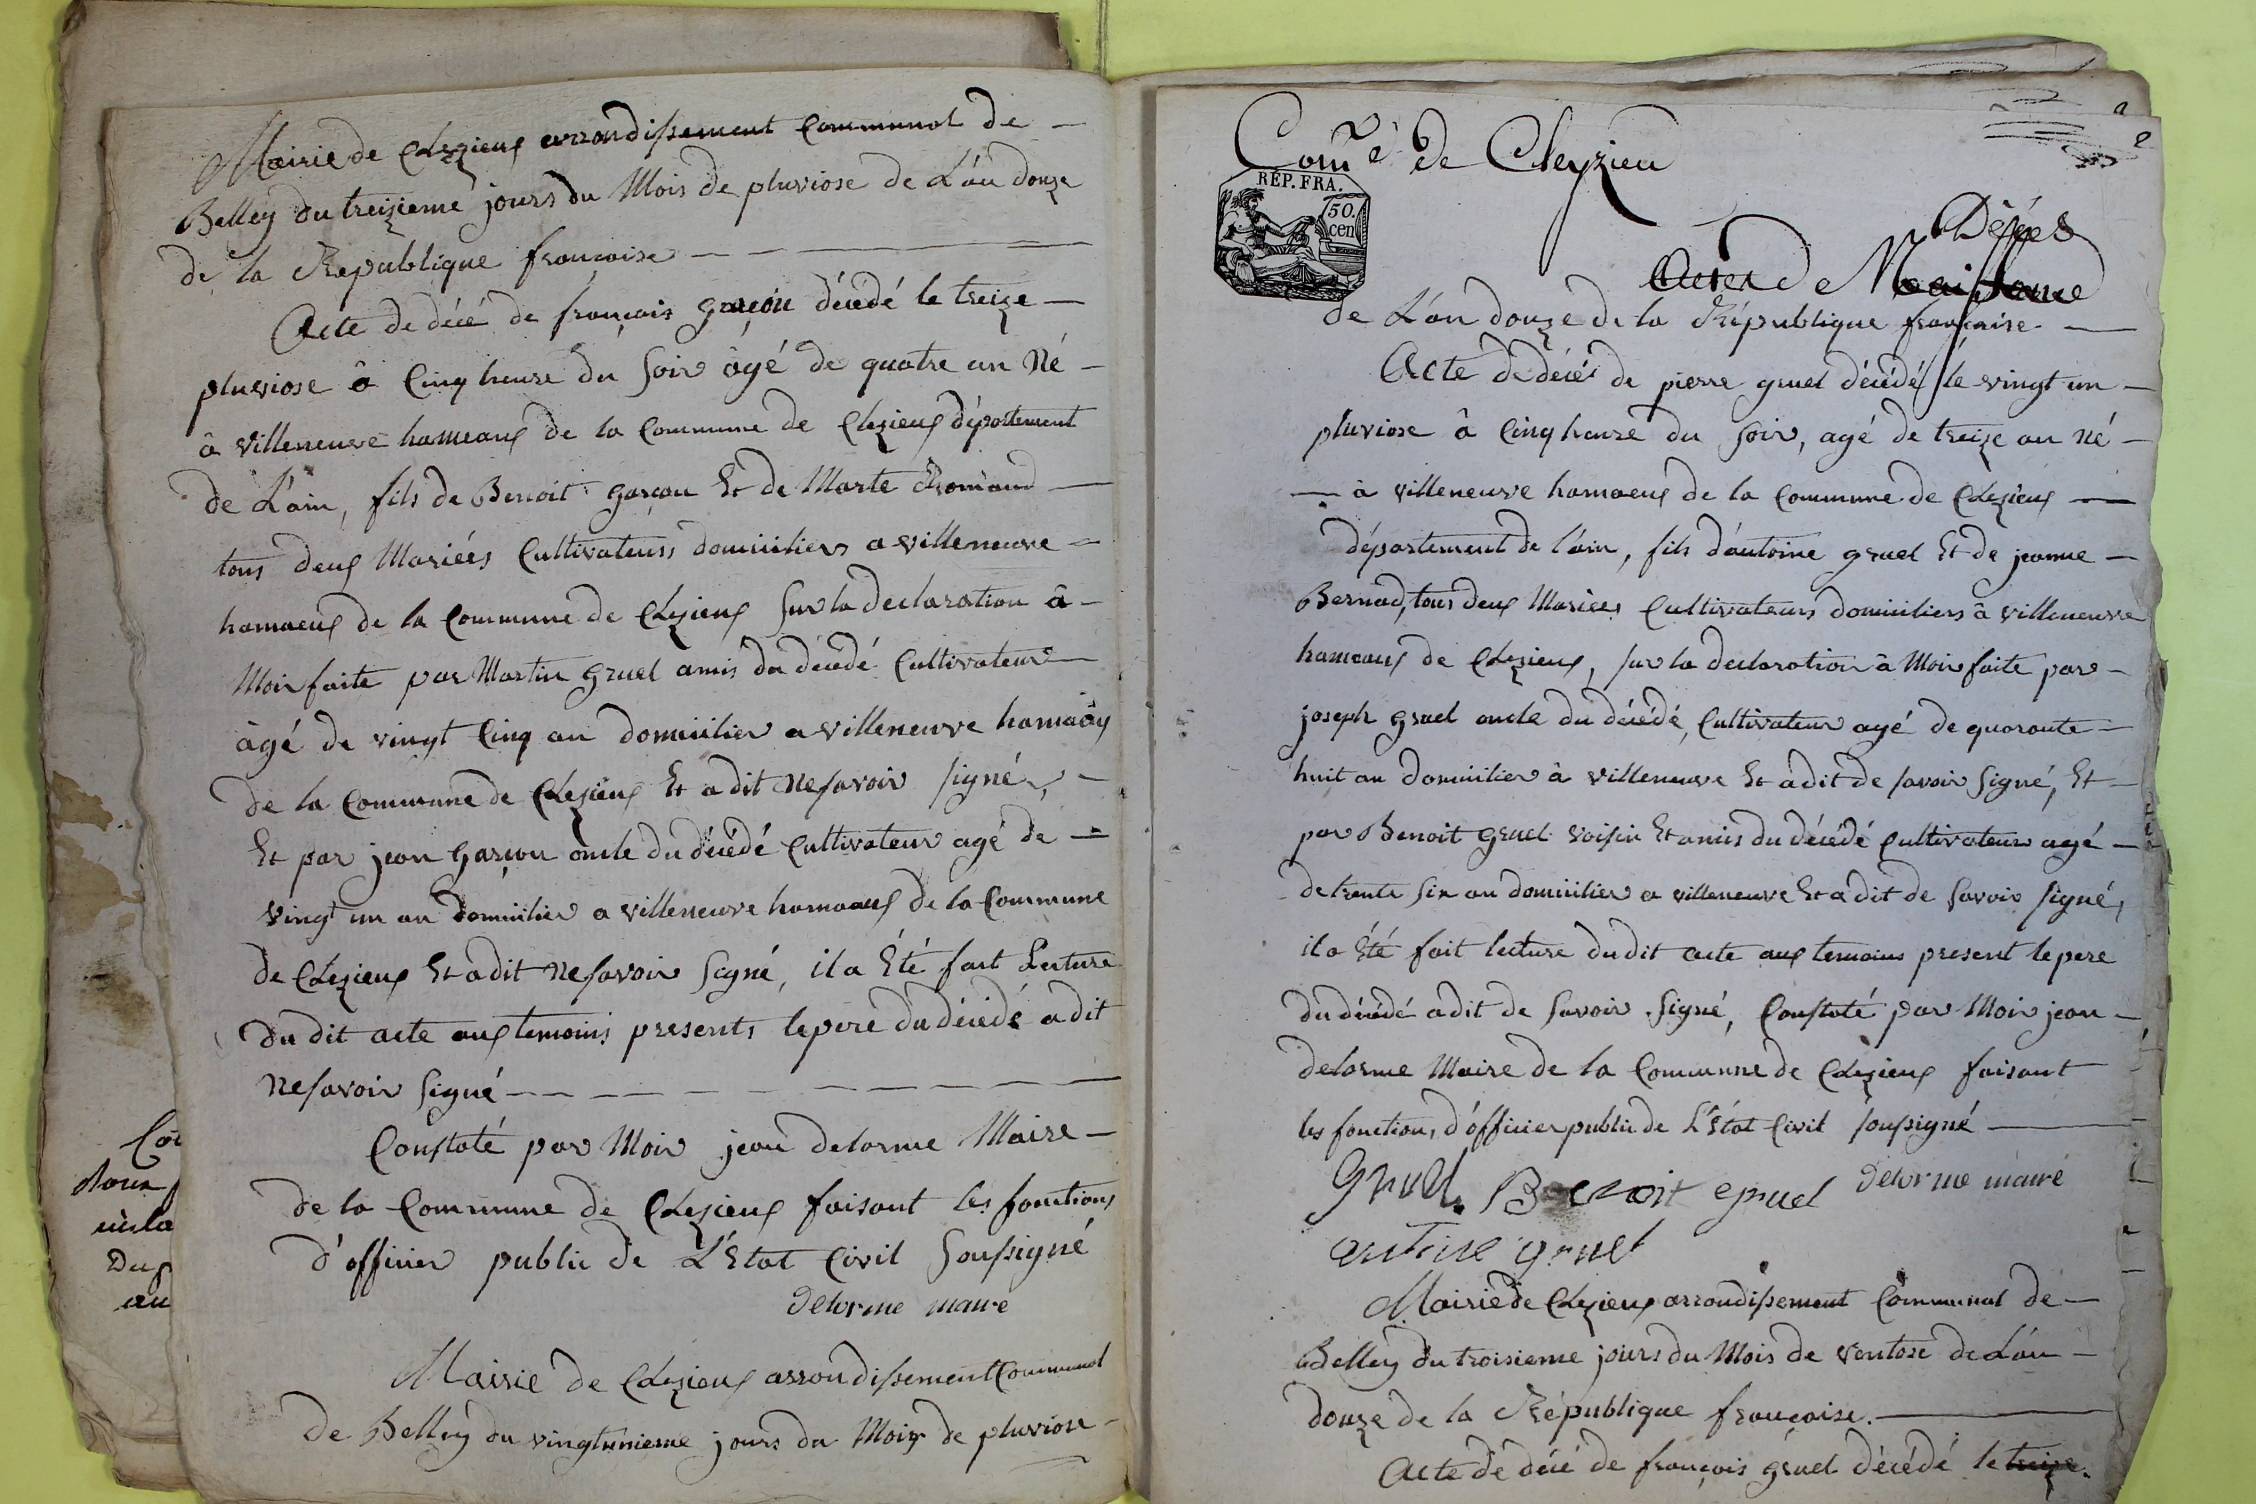 Mairie de Clezieux arrondissement Communal de
Belley du treizieme jours du Mois de pluviose de L'an douze
de la République françoise
Acte de décé de françois garçon décédé le treize
pluviose à Cinq heure du soir âgé de quatre an Né
à Villeneuve hameaux de la Commune de Clezieux département
de L'ain, fils de Benoit garçon Et de Marte Romand
tous deux Mariées Cultivateurs domicilier a villeneuve
hamaeux de la Commune de Clezieux sur la declaration à
Moi faite par Martin gruel amis du décédé Cultivateur
âgé de vingt Cinq an domicilier a villeneuve hamaux
de la Commune de Clezieux Et a dit ne savoir signé,
Et par jean garçon oncle du décédé Cultivateur agé de
vingt un an domicilier a villeneuve hamaeux de la Commune
de Clezieux Et a dit ne savoir signé, il a Été fait Lecture
du dit acte aux temoins presents, le pere du décédé a dit
ne savoir signé
Constaté par Moi jean delorme Maire
de la Commune de Clezieux faisant les fonctions
d'officier public de L'Etat Civil Soussigné
delorme maire
Mairie de Clezieux arrondissement Communal
de Belley du vingtunieme jours du Mois de pluviose
Com.e de Cleyzieu
REP. FRA.
50.
cen
2
Décés
Actes de Naissance
de L'an douze de la République française
Acte de décé de pierre gruel décédé le vingt un
pluviose à Cinq heure du soir, agé de treize an né
à villeneuve hamaeux de la Commune de Clezieux
département de l'ain, fils d'antoine gruel Et de jeanne
Bernad, tous deux Mariées Cultivateurs domiciliers à villeneuve
hameaux de Clezieux, sur la declaration à Moi faite par
joseph gruel oncle du décédé, Cultivateur agé de quarante
huit an domicilier à villeneuve Et a dit de savoir signé, Et
par Benoit gruel voisin Et amis du décédé Cultivateur agé
de trente six an domicilier a villeneuve Et a dit de savoir signé,
il a Été fait lecture du dit acte aux temoins present le pere
du décédé a dit de savoir signé, Constaté par Moi jean
delorme Maire de la Commune de Clezieux faisant
les fonction, d'officier public de L'Etat Civil soussigné
Gruel. Benoit gruel delorme maire
antoine gruel
Mairie de Clezieux arrondissement Communal de
Belley du troisieme jours du Mois de ventose de L'an
douze de la République françoise.
Acte de décé de françois gruel décédé le treize